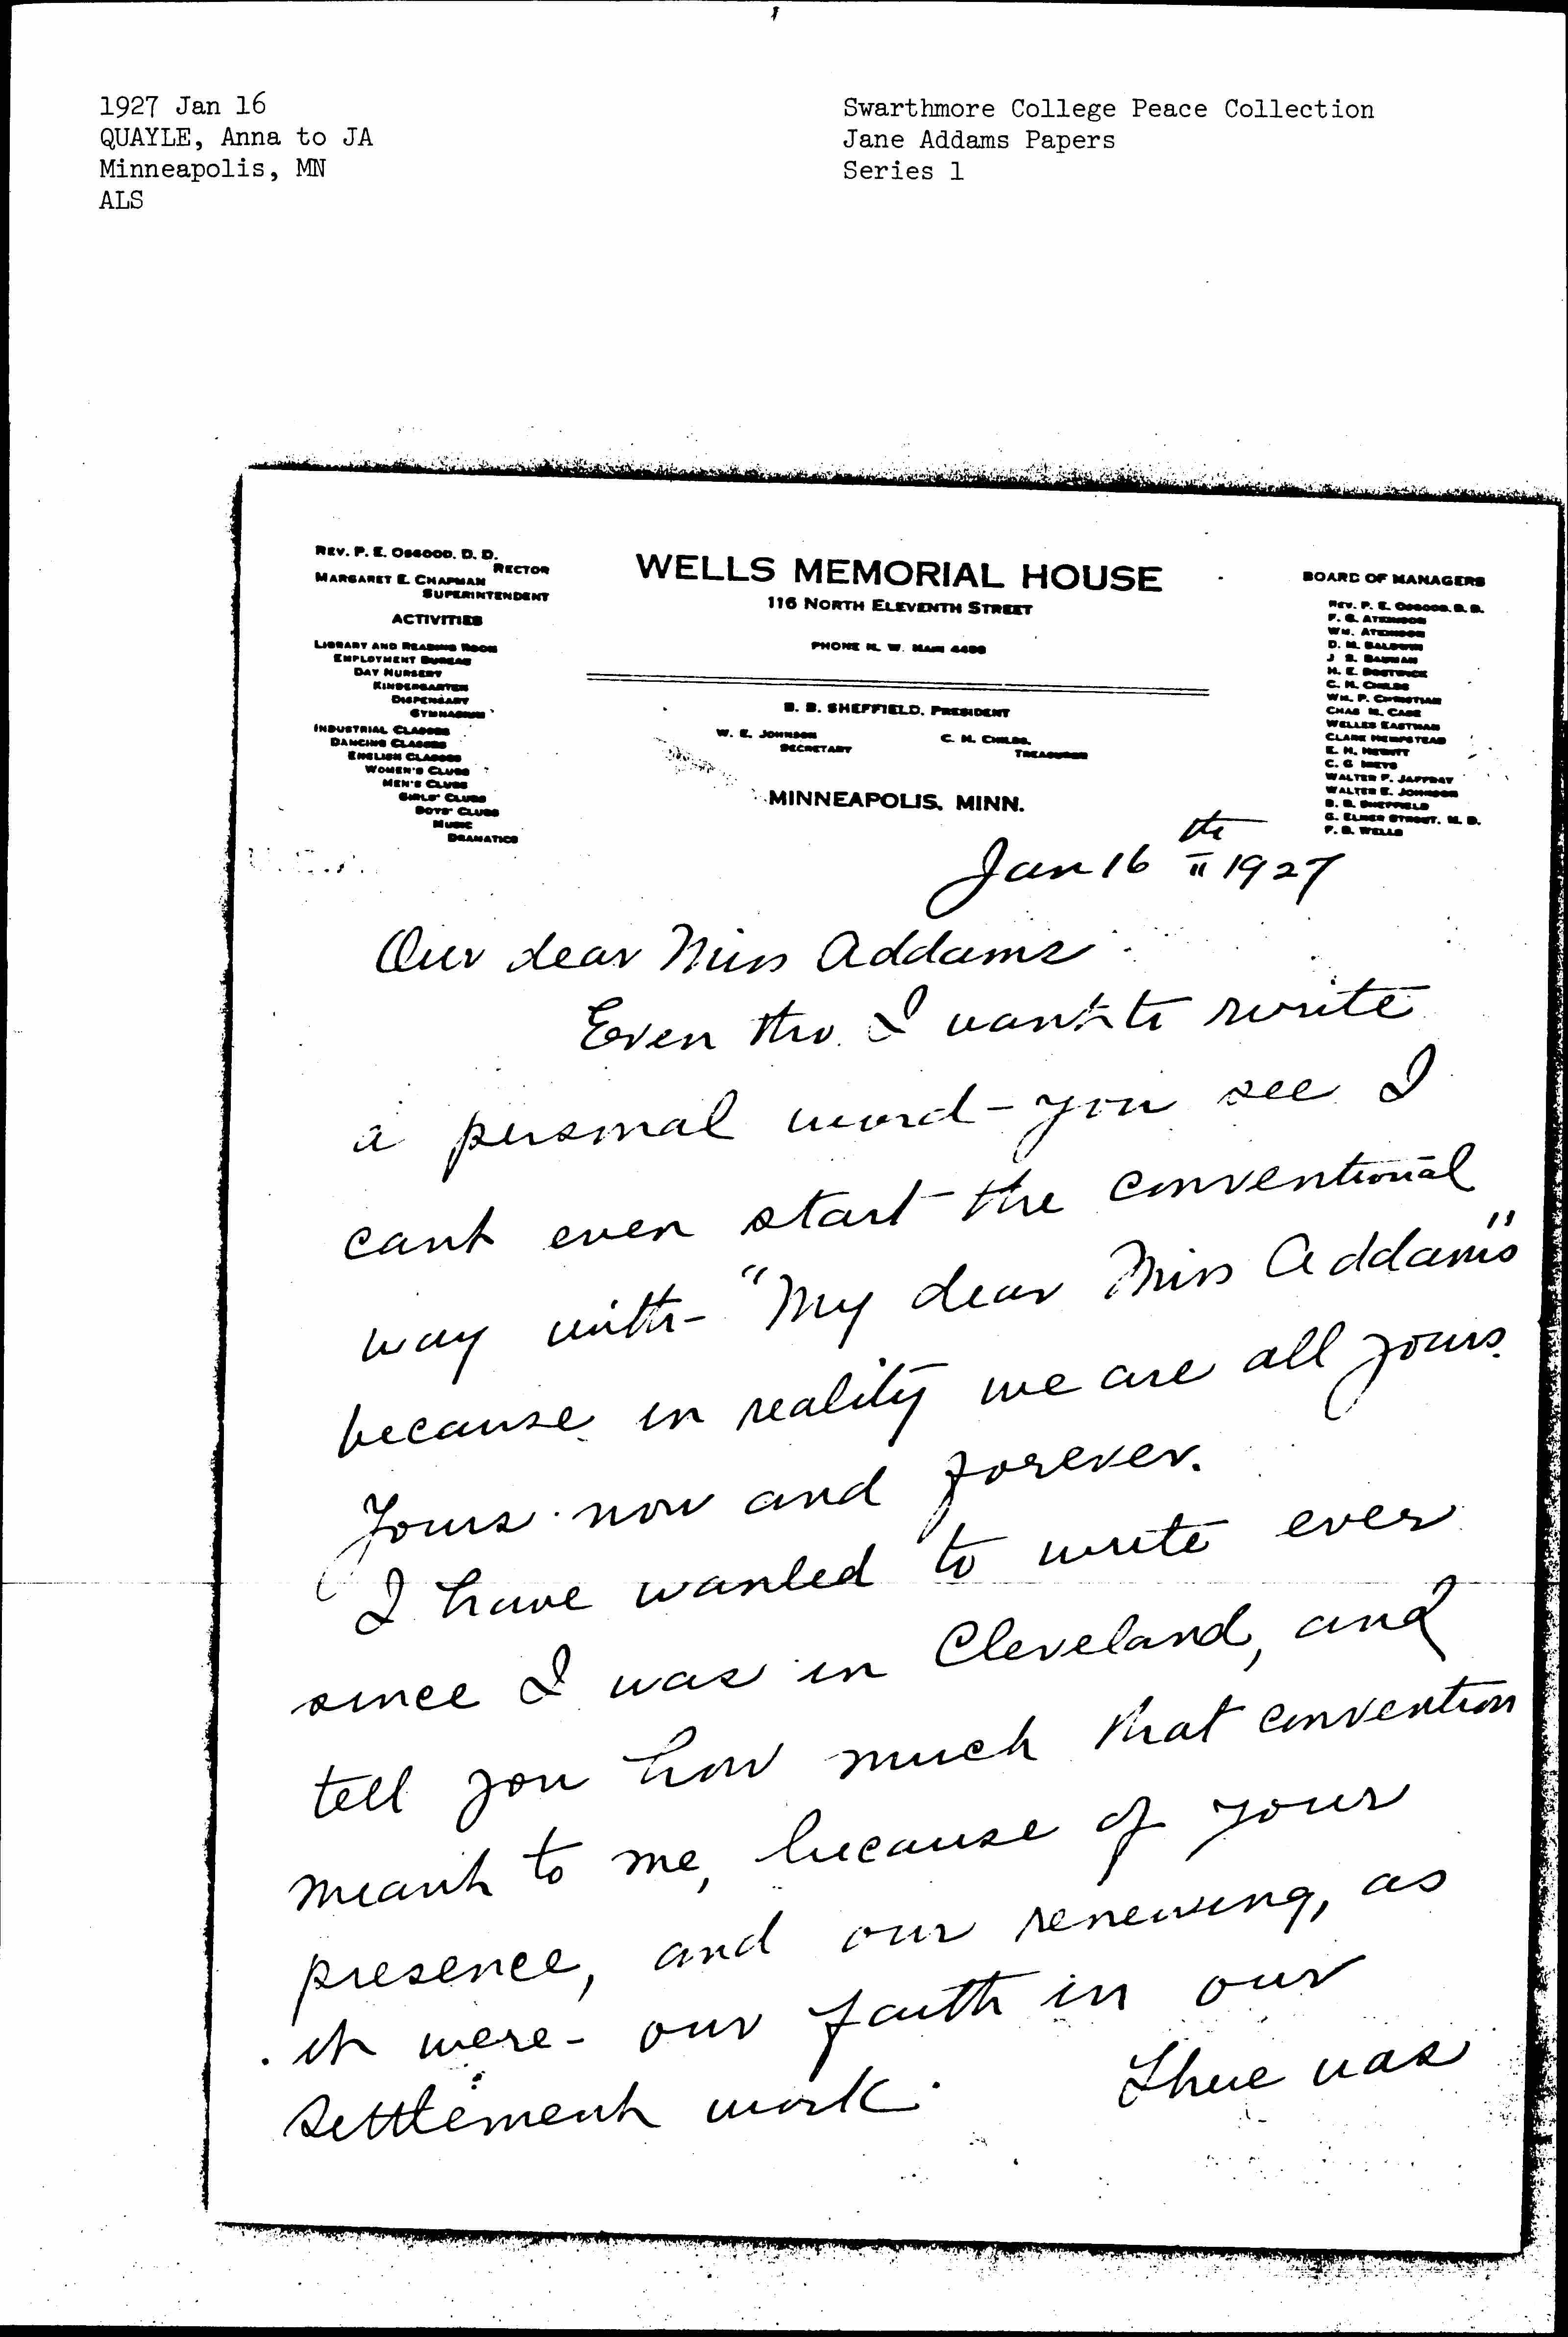 1927 Jan 16
QUAYLE, Anna to JA
Minneapolis, MN
ALS
Swarthmore College Peace Collection
Jane Addams Papers
Series 1
REV. P. E. OSGOOD, D. D.
RECTOR
MARGARET E. CHAPMAN
SUPERINTENDENT
ACTIVITIES
LIBRARY AND READING ROOM
EMPLOYMENT BUREAU
DAY NURSERY
KINDERGARTEN
DISPENSARY
GYMNASIUM
INDUSTRIAL CLASSES
DANCING CLASSES
ENGLISH CLASSES
WOMEN'S CLUBS
MEN'S CLUBS
GIRLS' CLUBS
BOYS' CLUBS
MUSIC
DRAMATICS
WELLS MEMORIAL HOUSE
116 NORTH ELEVENTH STREET
PHONE N. W. MAIN
B. B. SHEFFIELD, PRESIDENT
W. E. JOHNSON
SECRETARY
C. M. CHILDS,
TREASURER
MINNEAPOLIS, MINN.
BOARD OF MANAGERS
REV. P. E. OSGOOD, D. D.
F. G. ATKINSON
WM. ATKINSON
D. M. BALDWIN
J. S. BAUMAN
H. E. BOSTWICK
C. M. CHILDS
WM. P. CHRISTIAN
CHAS M. CASE
WELLES EASTMAN
CLARK HEMPSTEAD
E. H. HEWITT
C. G.
WALTER F. JAFFRAY
WALTER E. JOHNSON
B. B. SHEFFIELD
G. ELMER STROUT, M. D.
F. B. WELLS
Jan 16th 1927
Our dear Miss Addams
Even tho I want to write
a personal word - you see I
cant even start the conventional
way with - "My dear Miss Addams"
because in reality we are all yours.
Yours now and forever.
I have wanted to write ever
since I was in Cleveland, and
tell you how much that convention
meant to me, because of your
presence, and our renewing, as
it were - our faith in our
settlement work. There was